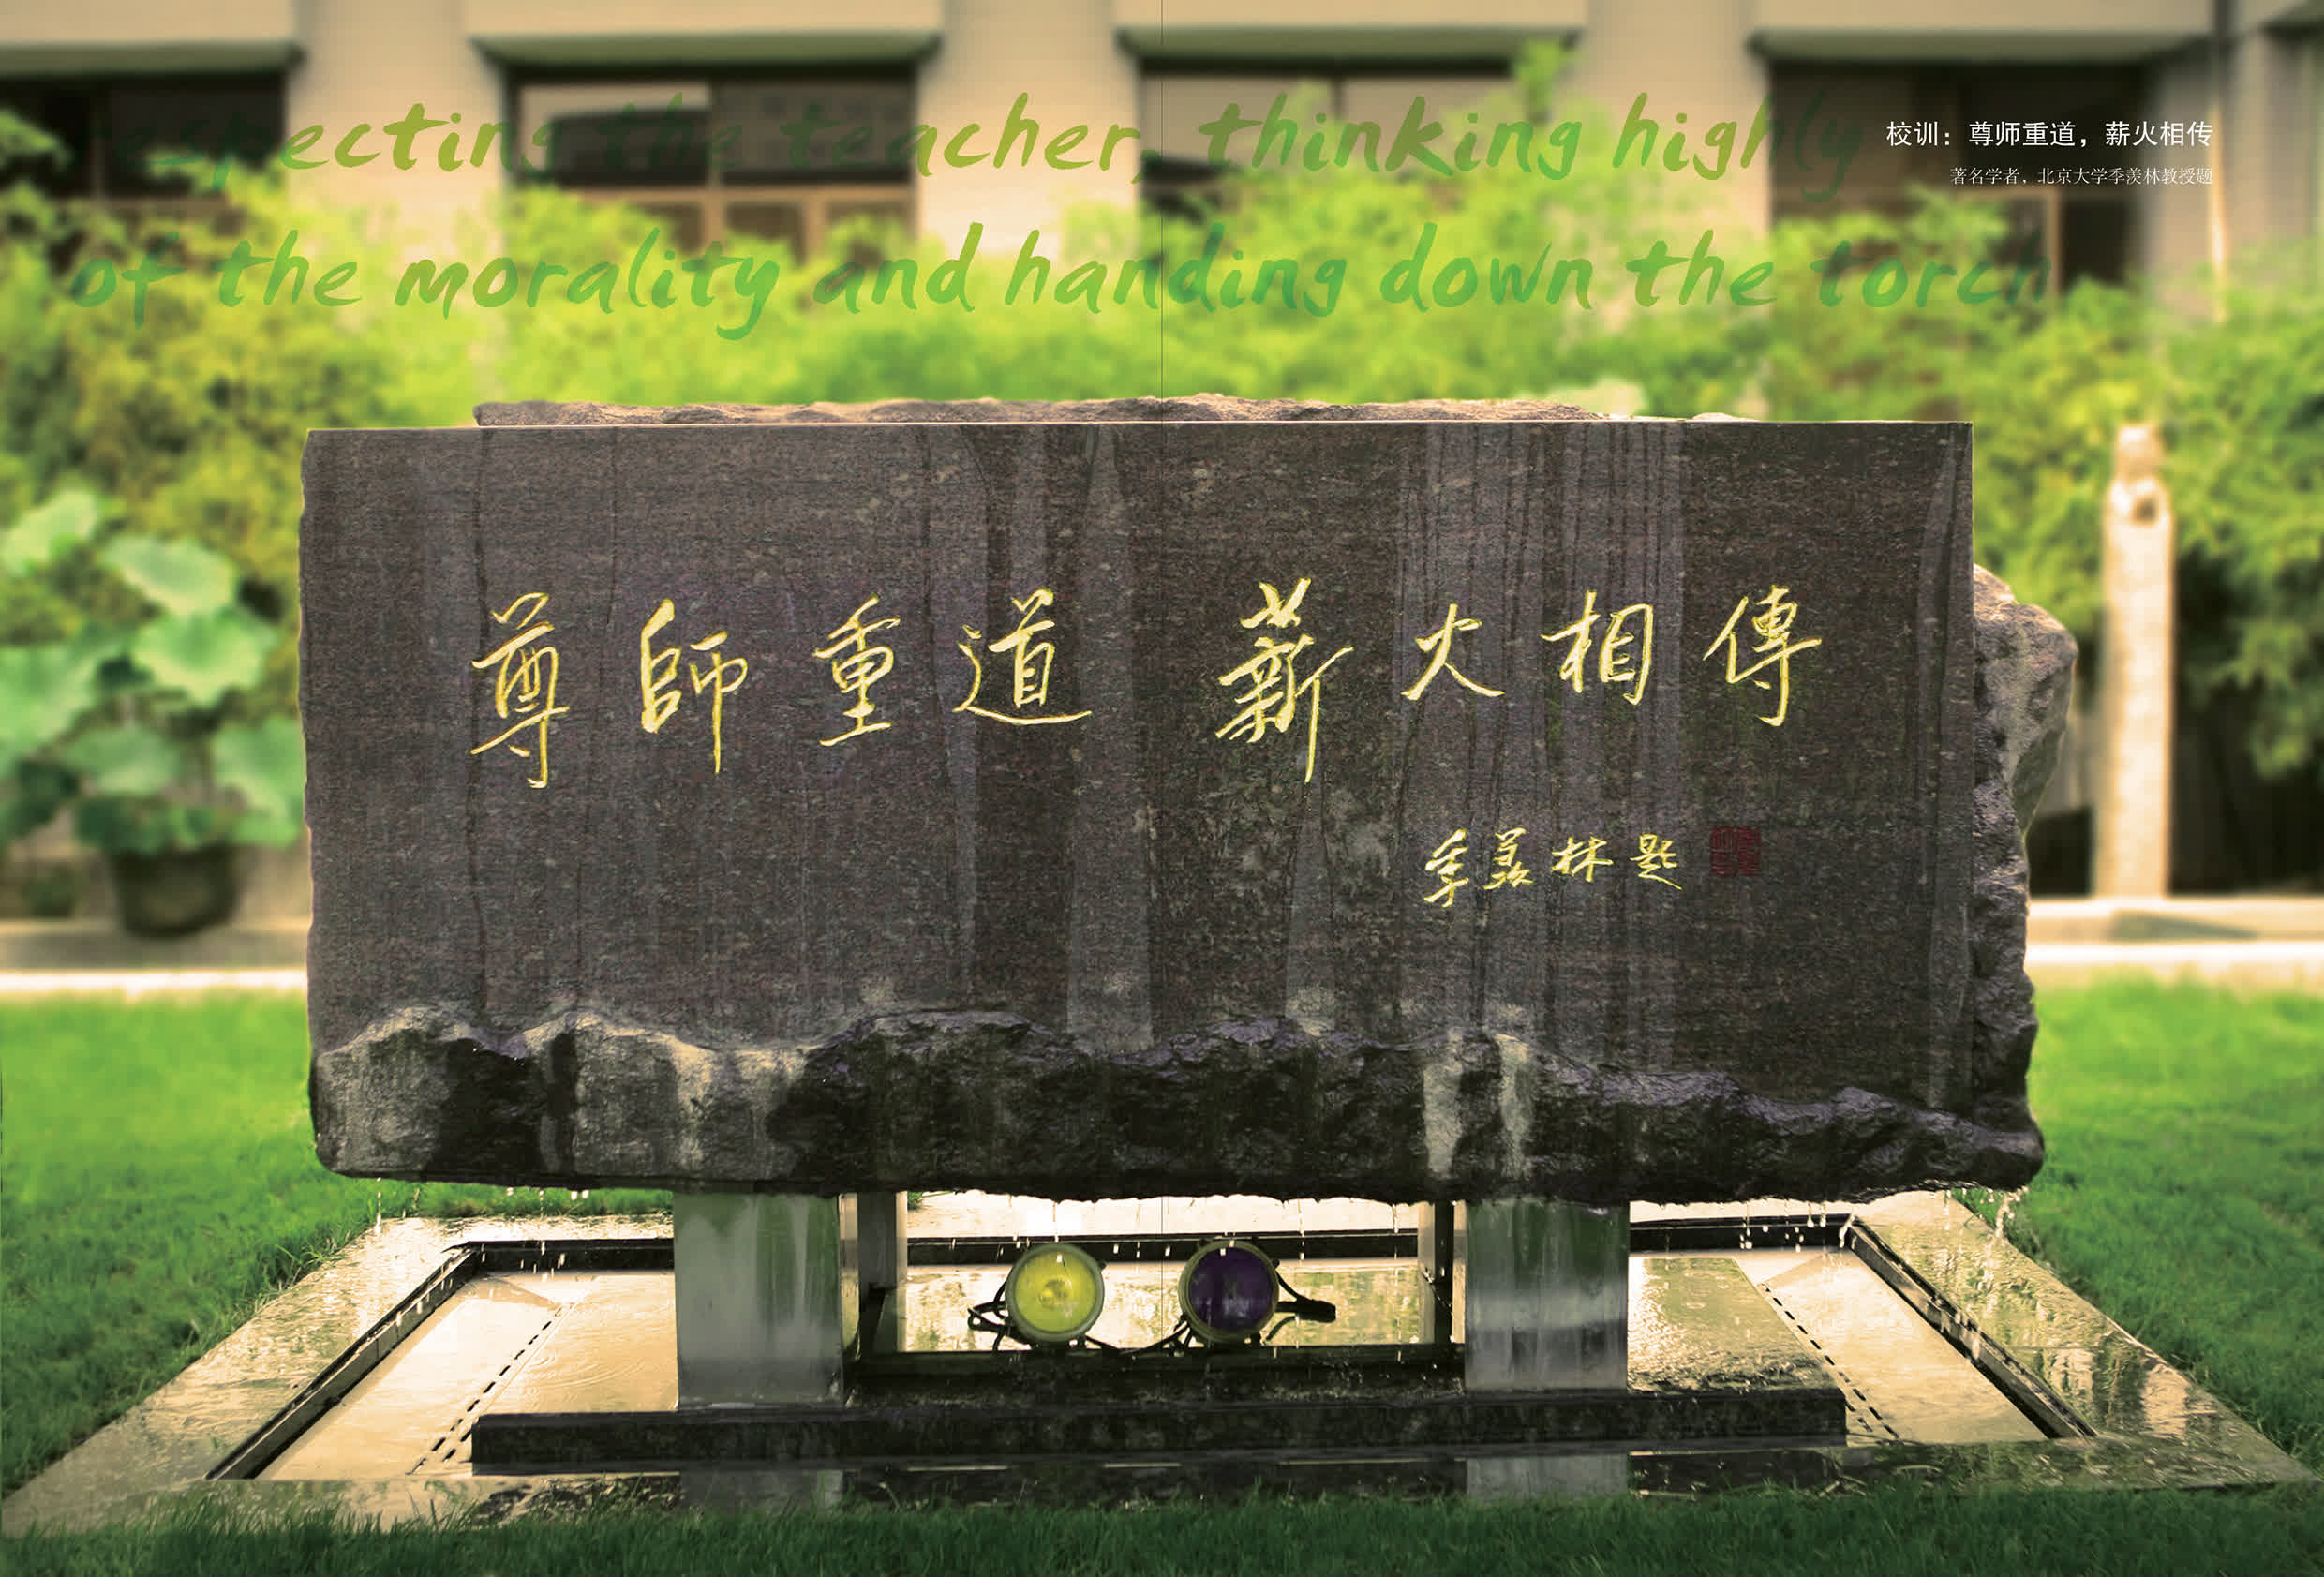 respecting the teacher, thinking highly
of the morality and handing down the torch
校训：尊师重道，薪火相传
著名学者，北京大学季羡林教授题
尊師重道 薪火相傳
季羡林题